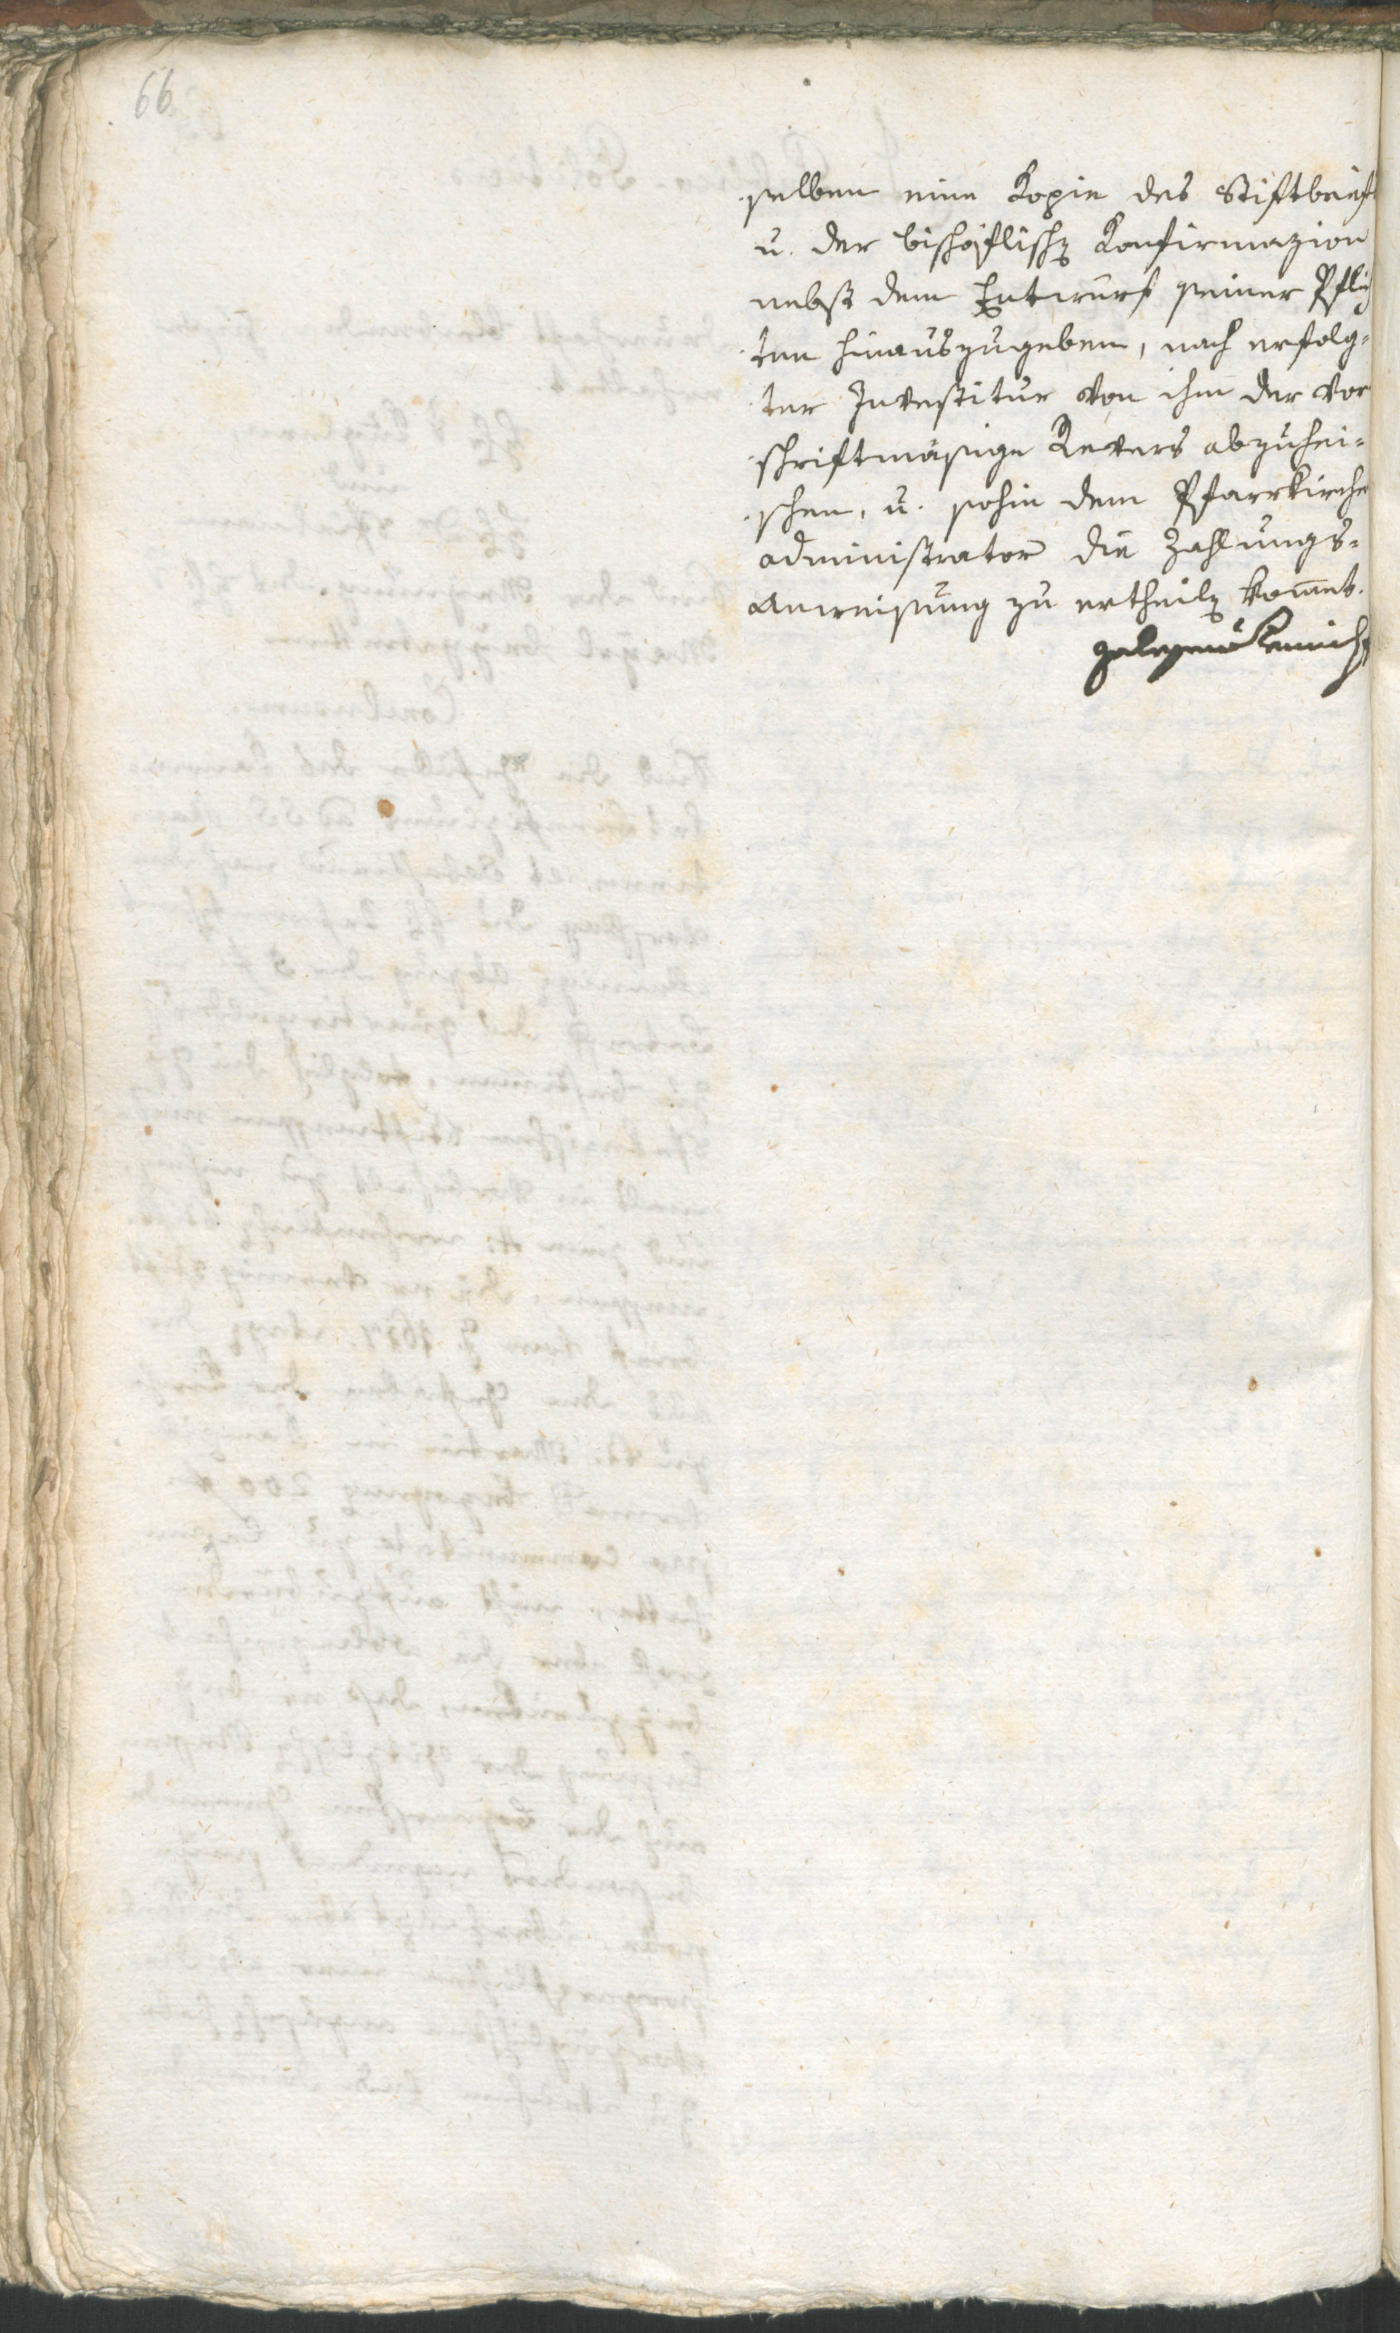 66
selben eine Kopie des Stiftbriefs
u. der bischöflisch Konfirmazion
nebst dem Entwurf seiner Pflich
ten hinauszugeben, nach erfolg=
ter Investitur von ihm der vor
schriftmäsige Revers abzuhei=
schen, u. sohin dem Pfarrkirche
administrator die Zahlungs=
Anweisung zu ertheilen kom̅et.